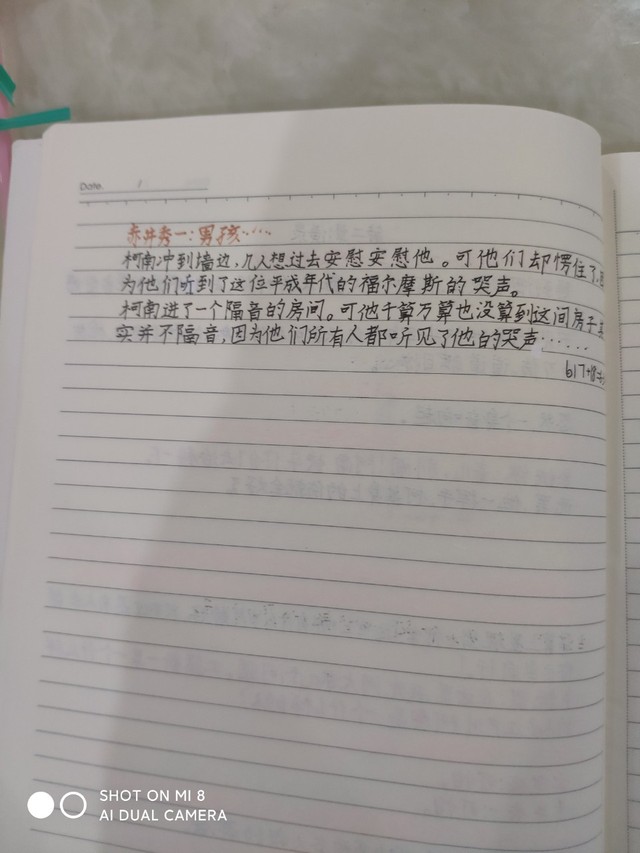 Date.
赤井秀一:男孩……
柯南冲到墙边,几人想过去安慰安慰他。可他们却愣住了,因
为他们听到了这位平成年代的福尔摩斯的哭声。
柯南进了一个隔音的房间。可他千算万算也没算到这间房子其
实并不隔音,因为他们所有人都听见了他的哭声……
617+18
SHOT ON MI 8
AI DUAL CAMERA